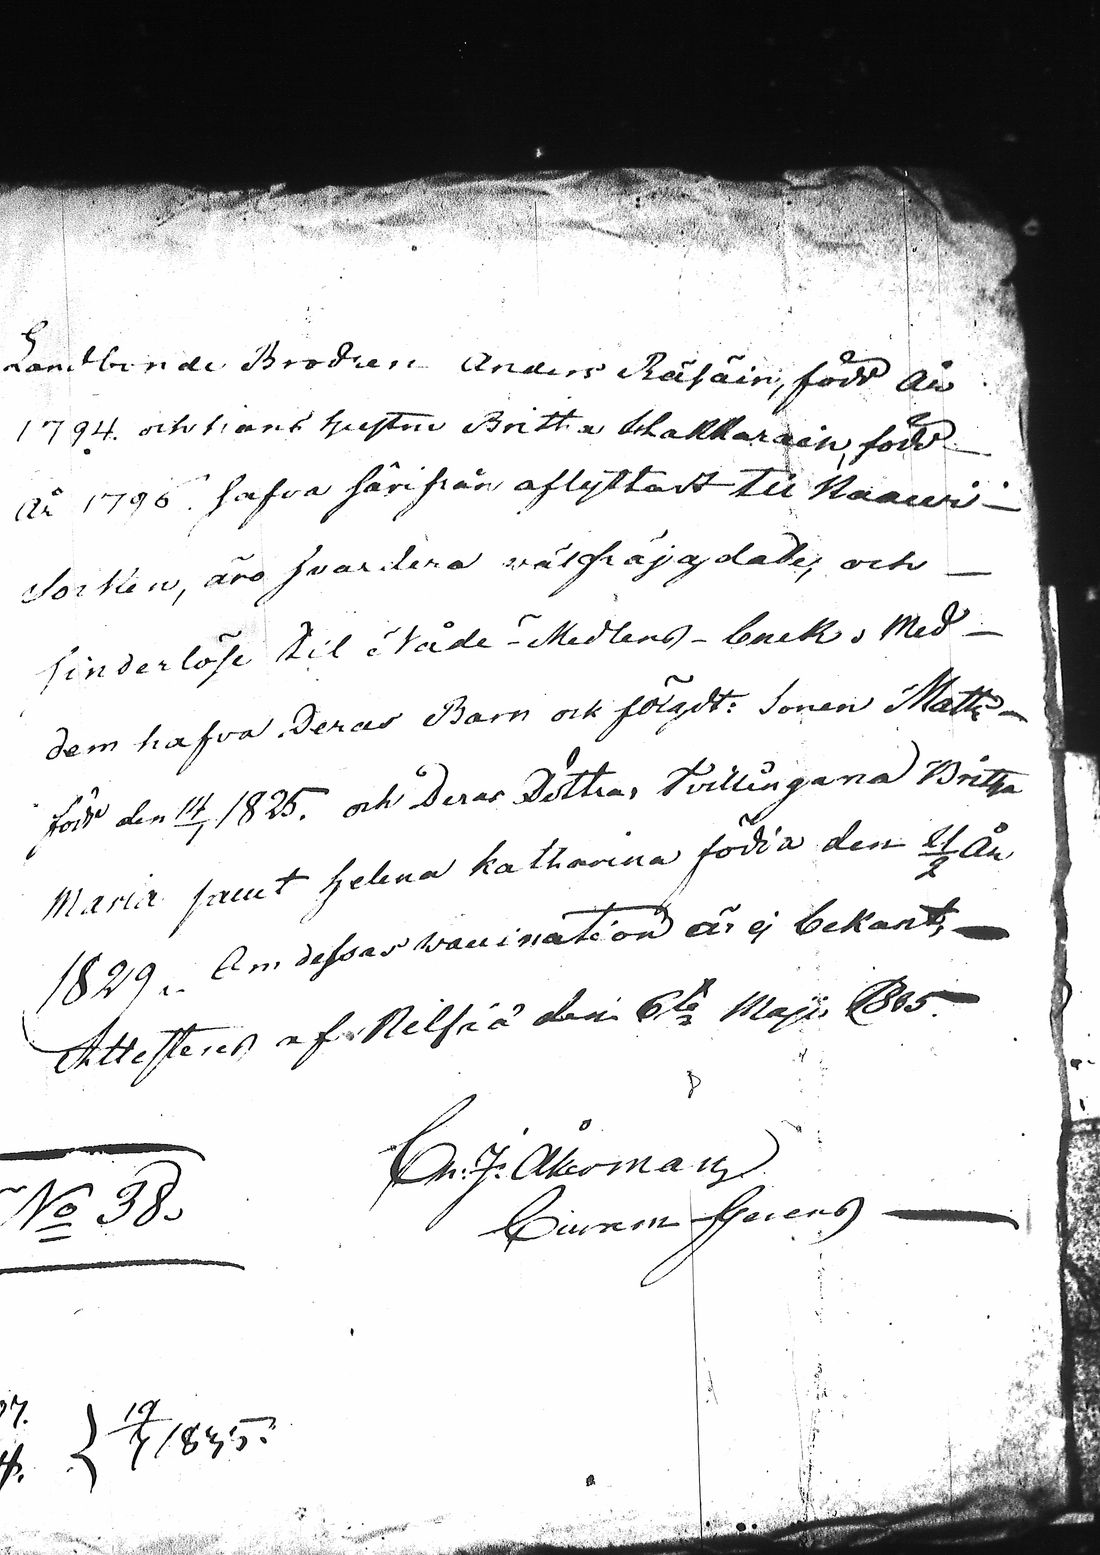 Landbonde Brodren Anders Räsäin, född År
1794. och hans hustru Britta Hakkarain, född
År 1796. hafva härifrån aflyttadt till Kaavi
Socken, äro hvardera välfräjgdade, och
hinderlöse til Nåde-Medlens-bruk, Med
dem hafva deras Barn ock följgdt: Sonen Matts
född den 14/1 1825. och Deras Döttrar Tvillingarna Britta
Maria samt Helena Katharina födda den 21/2 År
1829. Om dessas vaccination är ej bekant,
Attesteras af Nilsiä den 6te Maji 1835.
Ch. J. Åkerman
Curam Gerens
No 38.
19/7 1835.